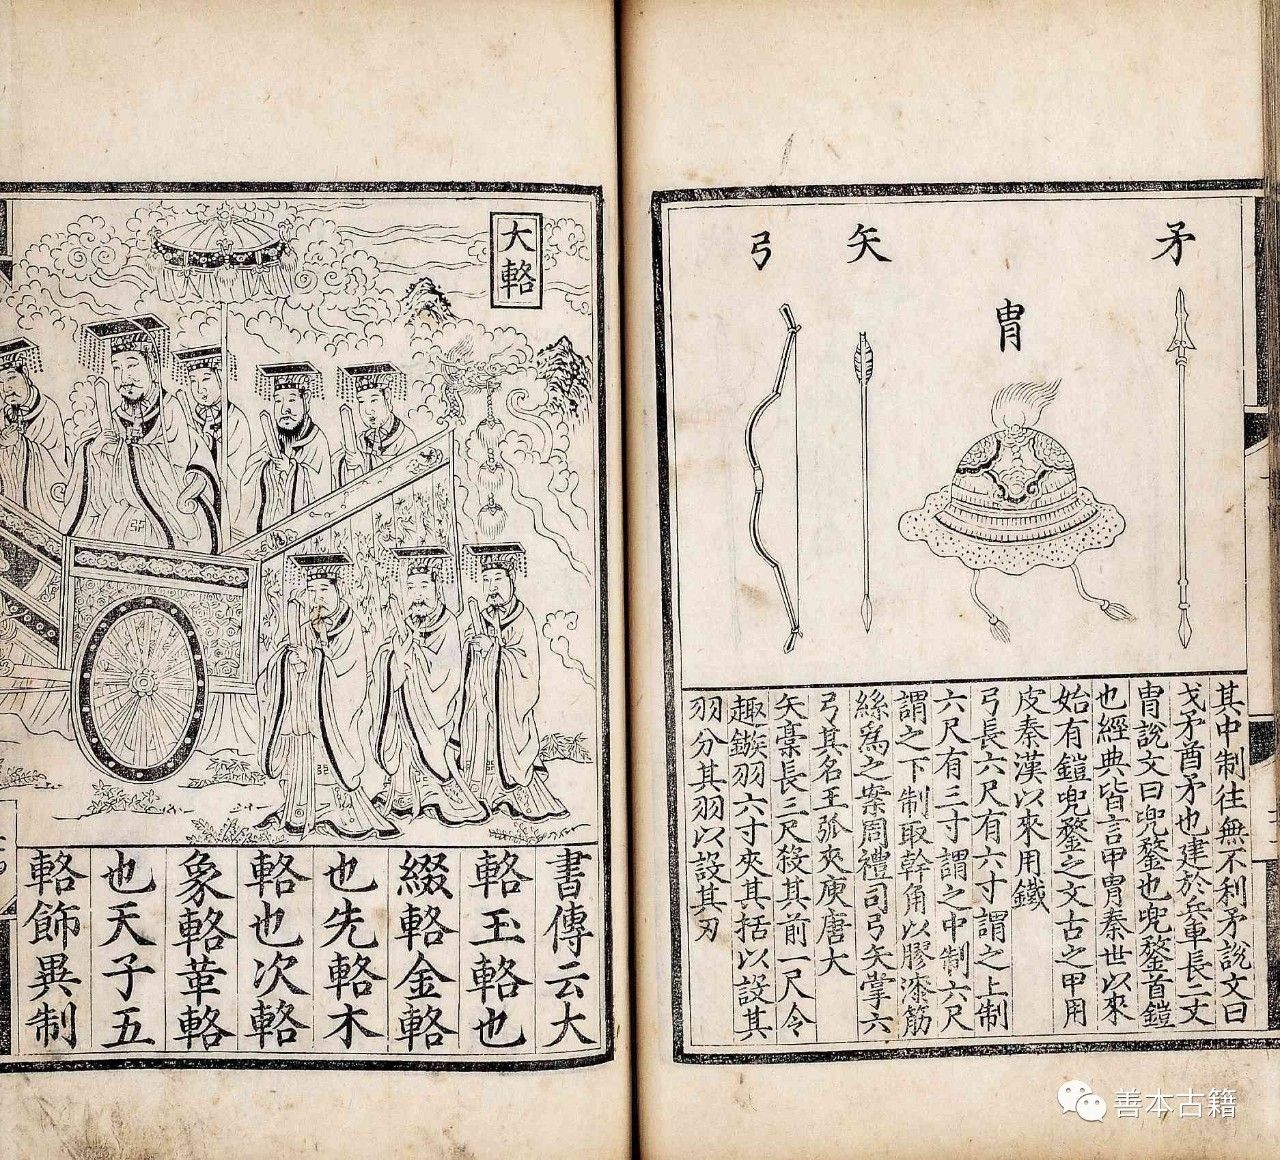 矛
冑
矢
弓
其中制往無不利矛說文曰
戈矛酋矛也建於兵車長二丈
冑說文曰兜鍪也兜鍪首鎧
也經典皆言甲冑秦世以來
始有鎧兜鍪之文古之甲用
皮秦漢以來用鐵
弓長六尺有六寸謂之上制
六尺有三寸謂之中制六尺
謂之下制取幹角以膠漆筋
絲爲之案周禮司弓矢掌六
弓其名王弧夾庾唐大
矢槀長三尺殺其前一尺令
趣鏃羽六寸夾其括以設其
羽分其羽以設其刃
大輅
書傳云大
輅玉輅也
綴輅金輅
也先輅木
輅也次輅
象輅革輅
也天子五
輅飾異制
善本古籍